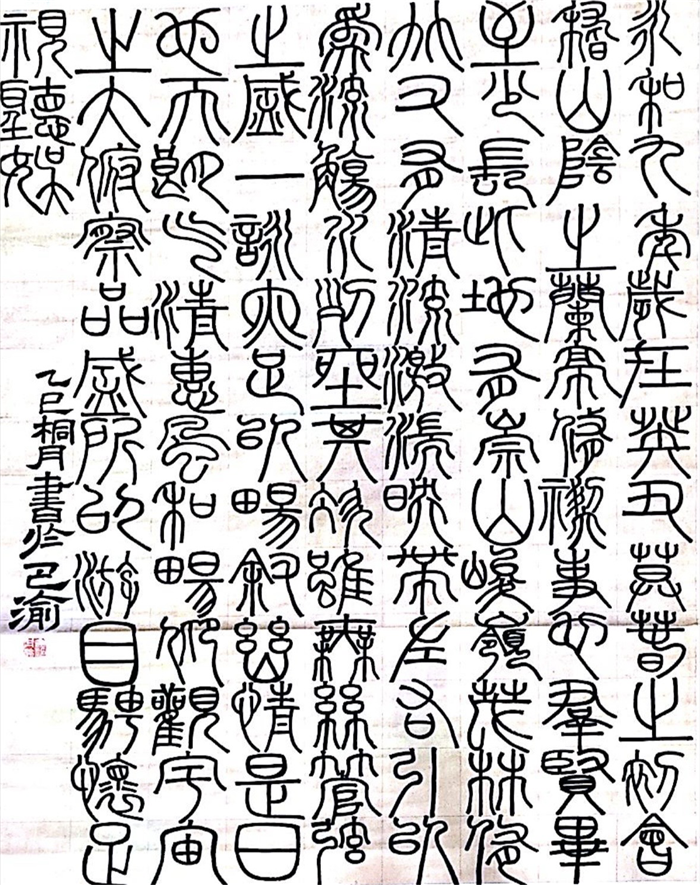 永和九年歲在癸丑暮春之初會
稽山陰之蘭亭修禊事也羣賢畢
至少長此地有崇山峻嶺茂林修
竹又有清流激湍映帶左右引以
為流觴水列坐其次雖無絲竹管弦
之盛一詠亦足以暢敘幽情是日
也天朗氣清惠風和暢仰觀宇宙
之大俯察品盛所以游目騁懷足
視聽娛
乙巳桐月書於巴渝